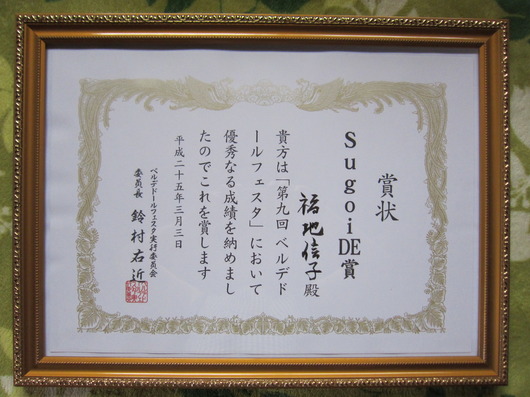 賞状
SugoiDE賞
福地信子殿
貴方は「第九回ベルデド
ールフェスタ」において
優秀なる成績を納めまし
たのでこれを賞します
平成二十五年三月三日
ベルデドールフェスタ実行委員会
委員長 鈴村右近